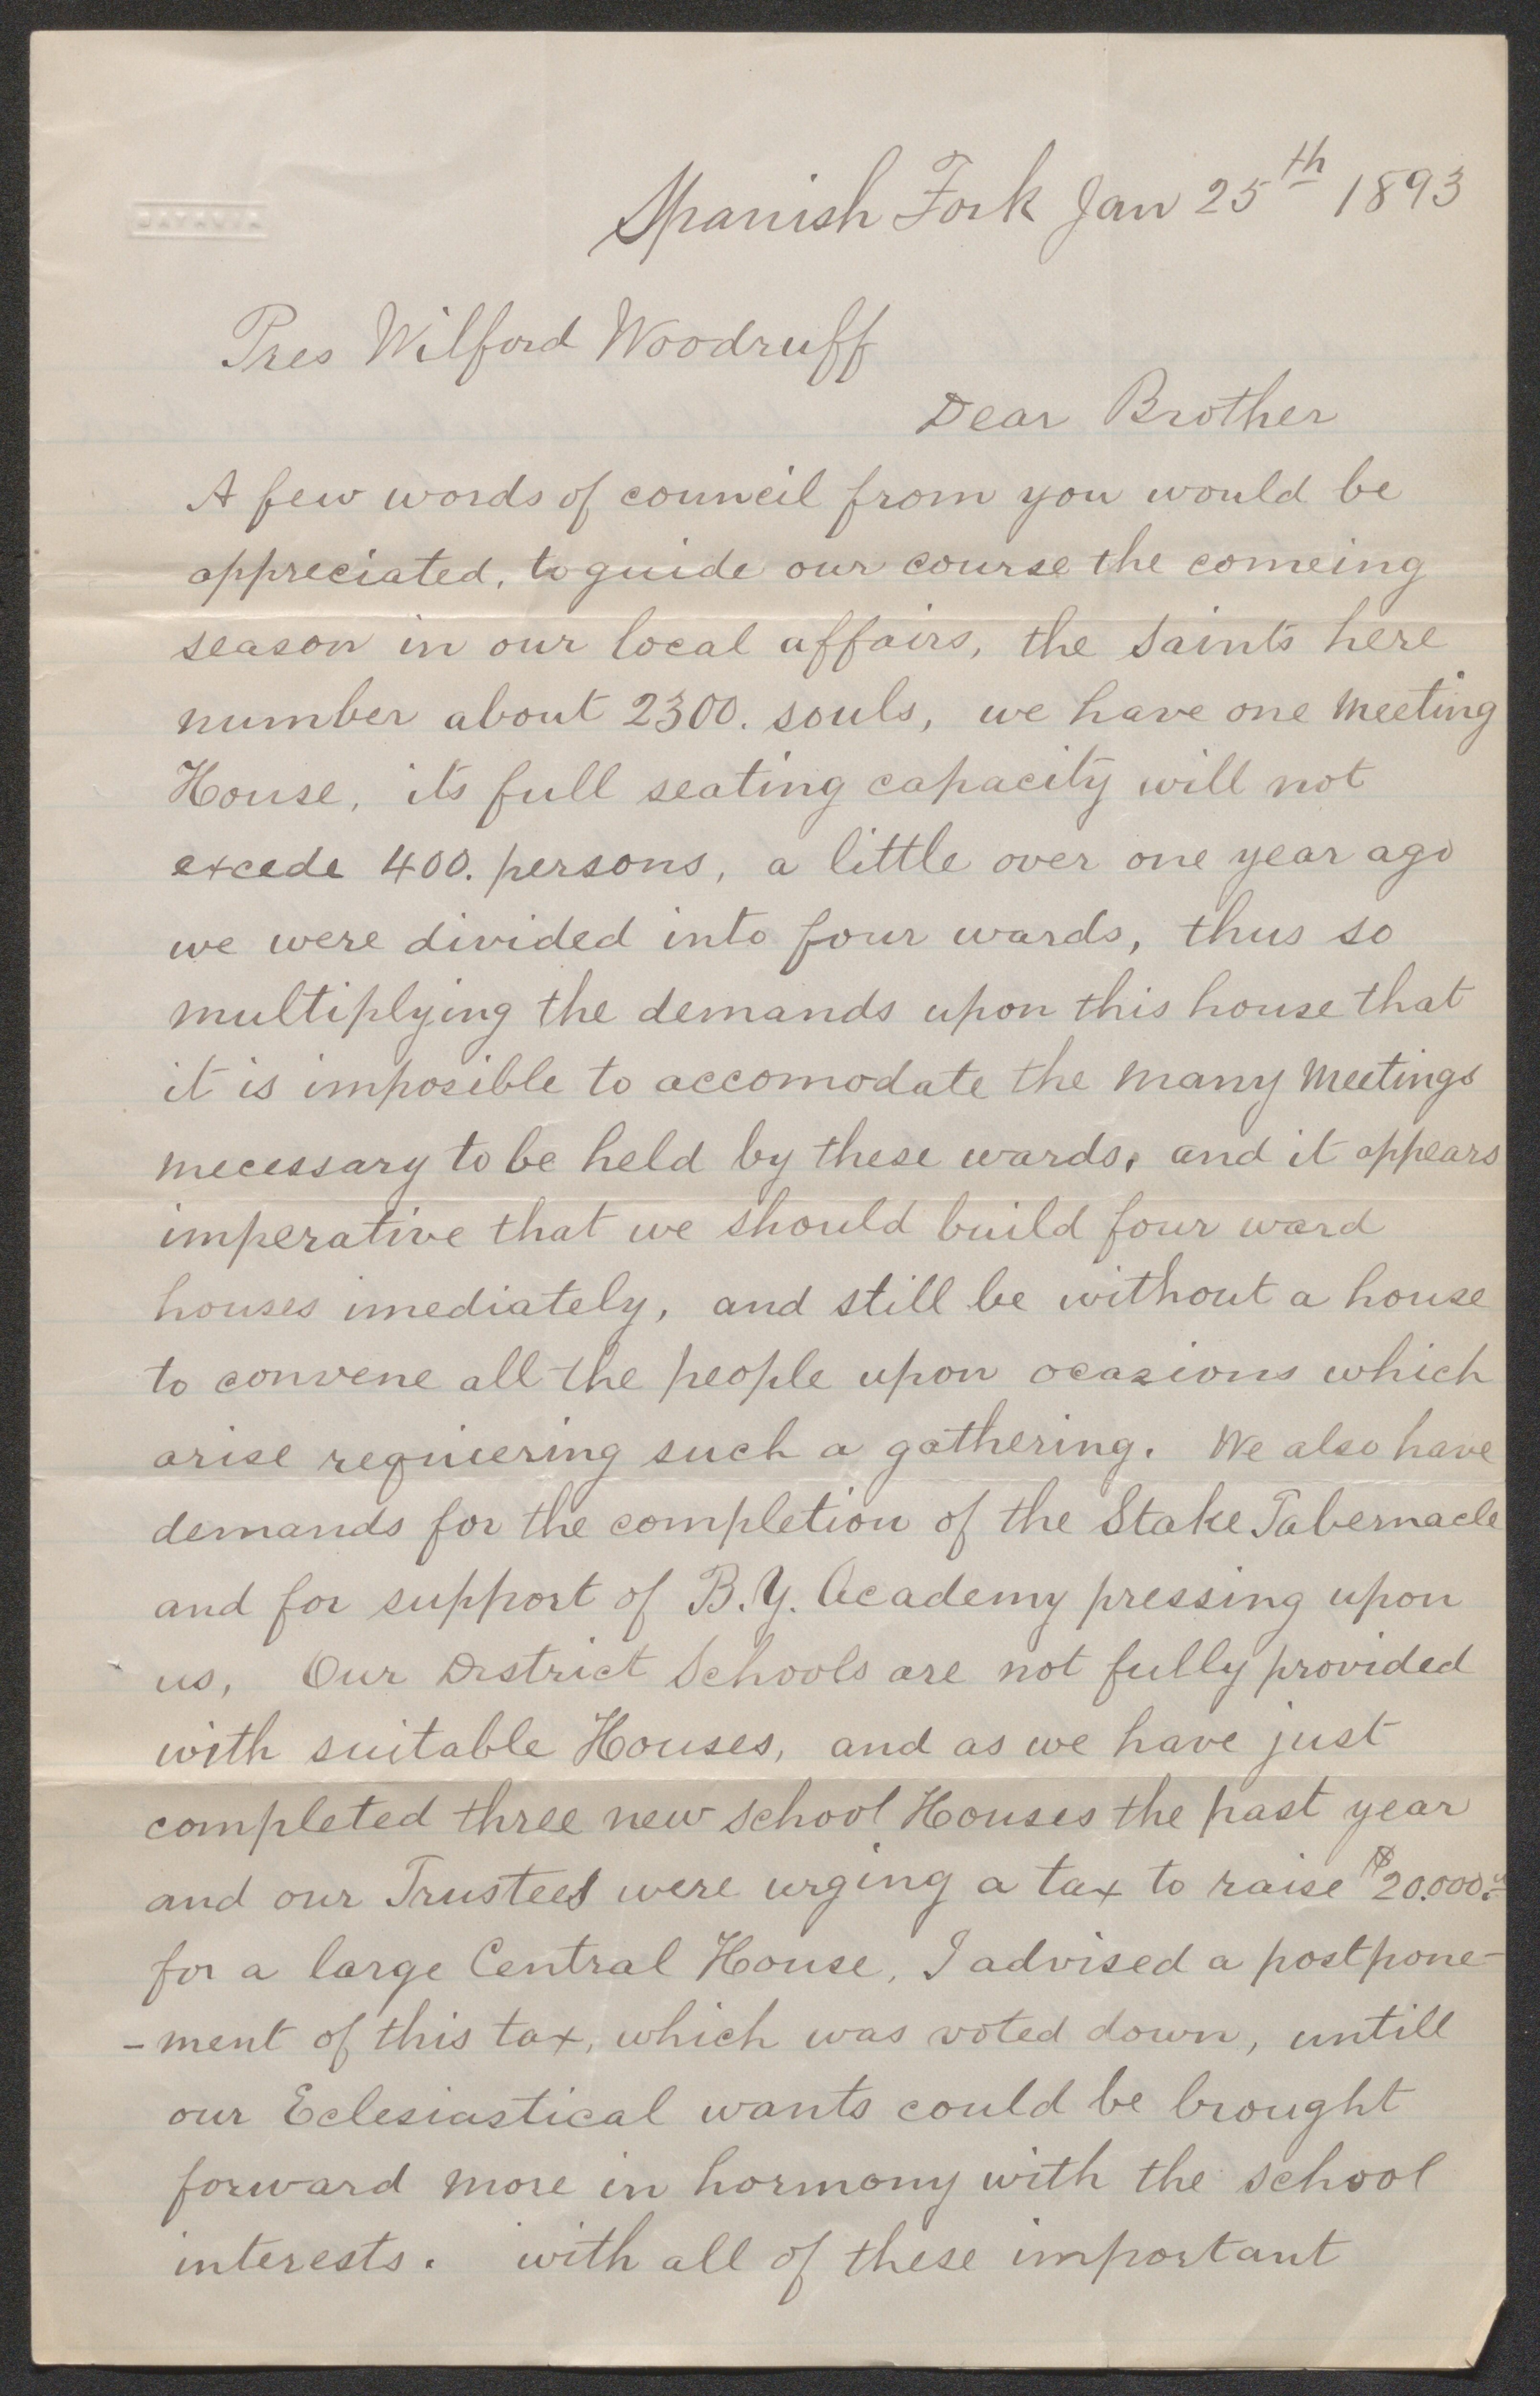 Spanish Fork Jan 25th 1893
Pres Wilford Woodruff
Dear Brother
A few words of council from you would be
appreciated, to guide our course the comeing
season in our local affairs, the Saints here
number about 2300. souls, we have one Meeting
House, its full seating capacity will not
excede 400. persons, a little over one year ago
we were divided into four wards, thus so
multiplying the demands upon this house that
it is imposible to accomodate the many Meetings
necessary to be held by these wards, and it appears
imperative that we should build four ward
houses imediately, and still be without a house
to convene all the people upon ocasions which
arise requiering such a gathering. We also have
demands for the completion of the Stake Tabernacle
and for support of B.Y. Academy pressing upon
us, Our District Schools are not fully provided
with suitable Houses, and as we have just
completed three new school Houses the past year
and our Trustees were urging a tax to raise $20.000.
for a large Central House, I advised a postpone-
-ment of this tax, which was voted down, untill
our Eclesiastical wants could be brought
forward more in hormony with the school
interests. with all of these important